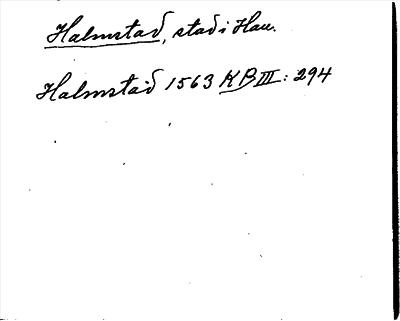 Halmstad, stad i Hall.
Halmstad 1563 KB III: 294